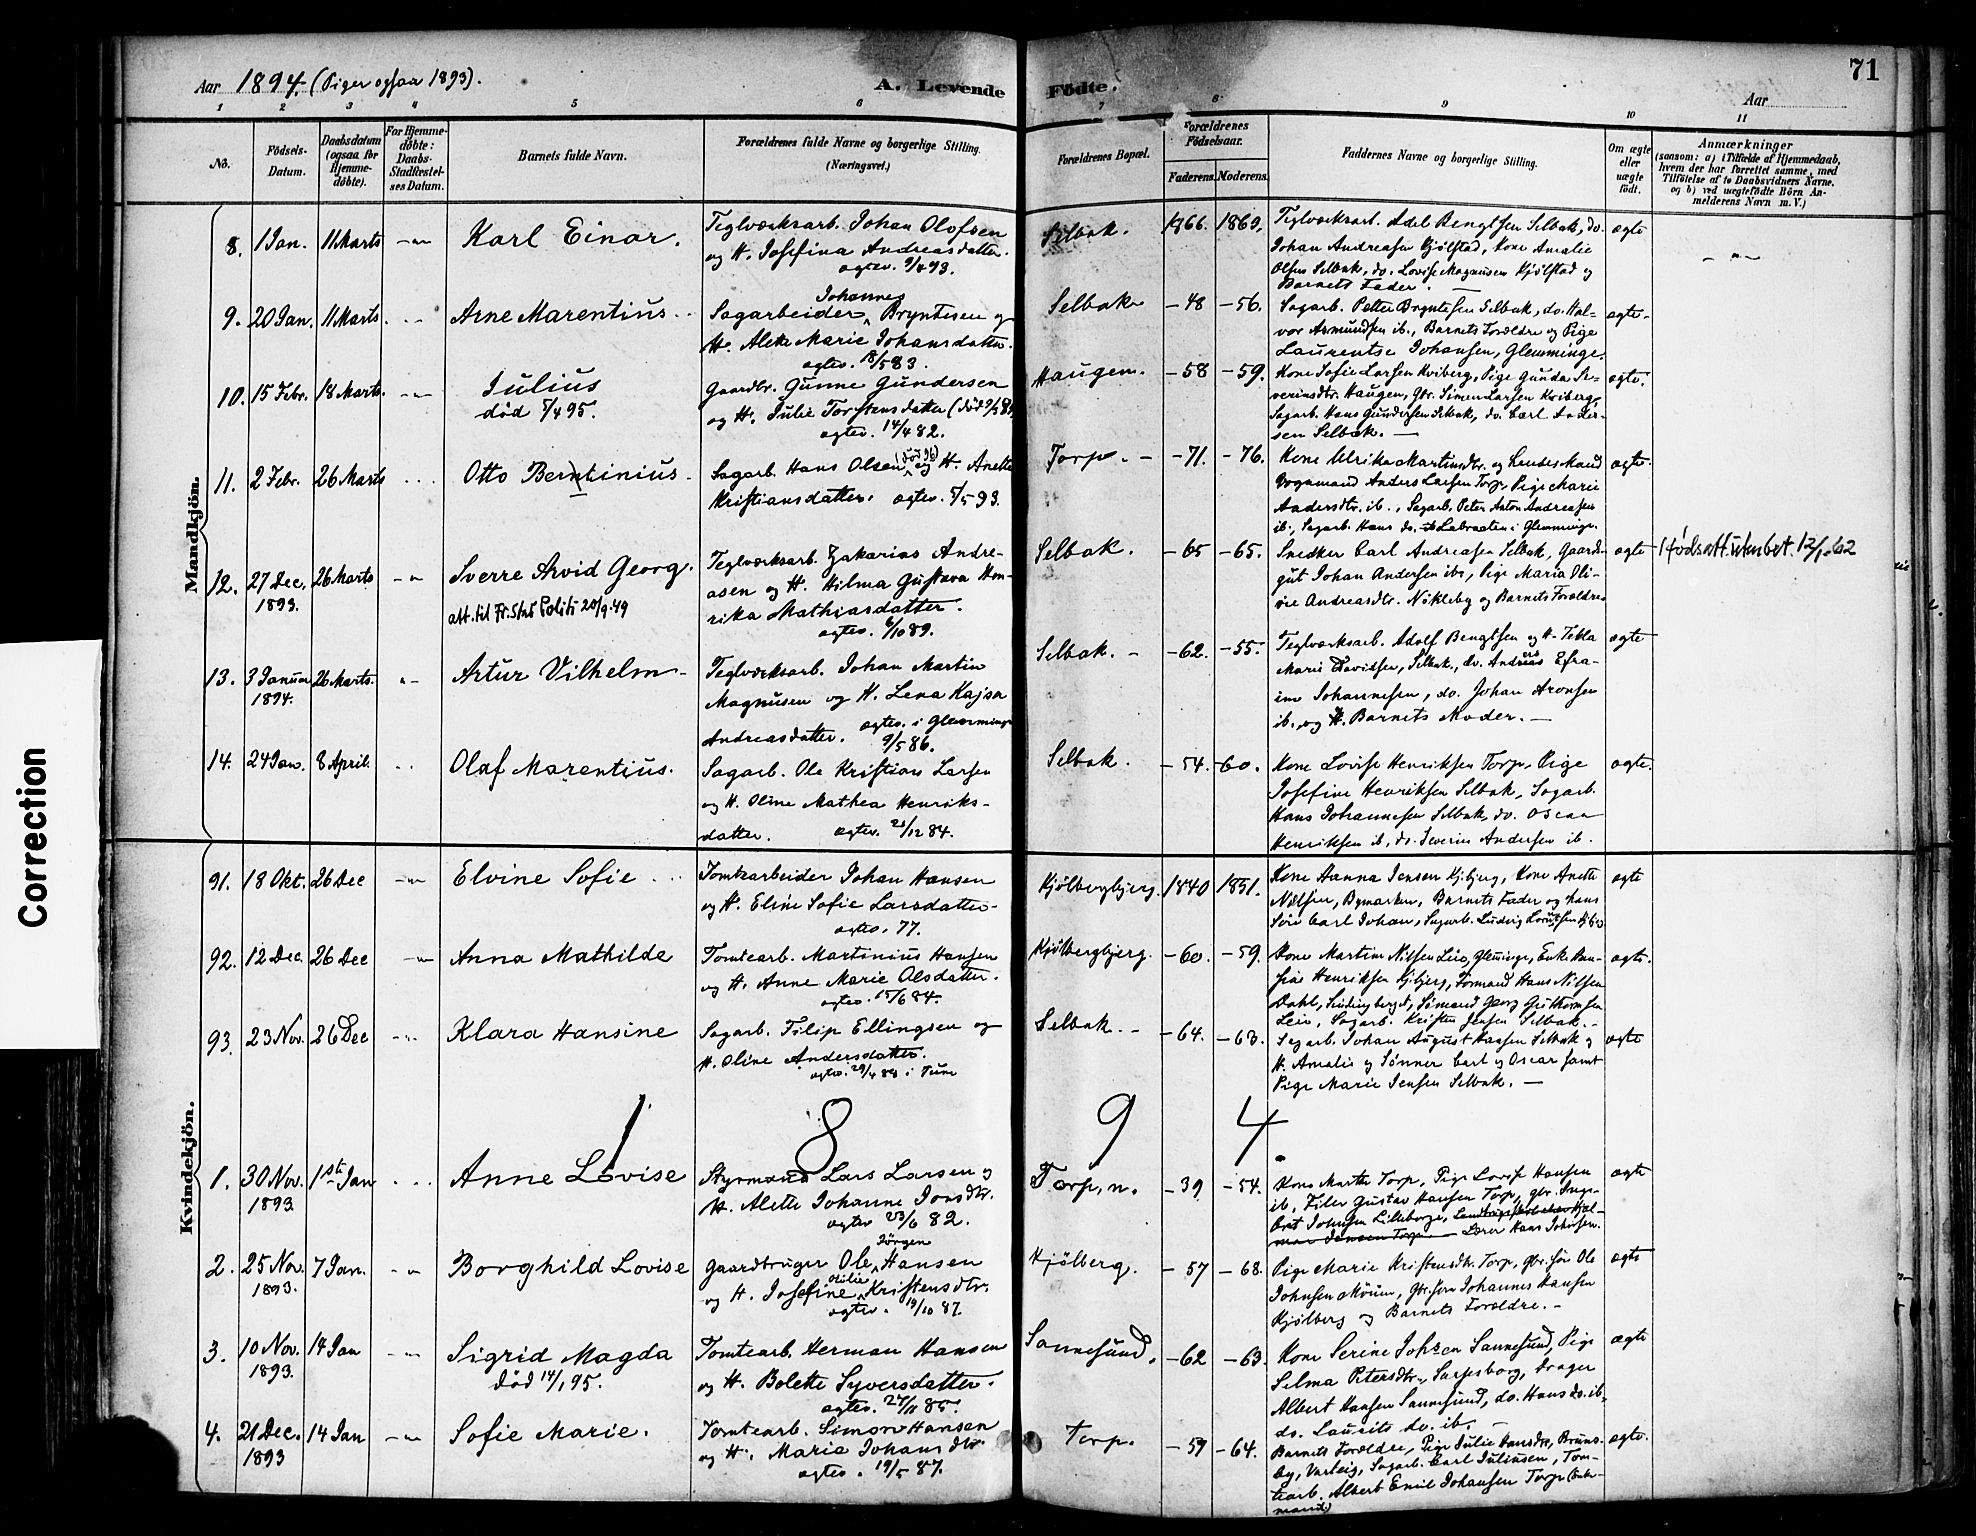 71
Aar 1894. (Piger ogsaa 1893). A. Levende Födte. Aar
1 2 3 4 5 6 7 8 9 10 11
Nö. Födsels-Datum. Daabsdatum (ogsaa for Hjemme-döbte). For Hjemme-döbte: Daabs-Stadfæstel-ses Datum. Barnets fulde Navn. Forældrenes fulde Navne og borgerlige Stilling. (Næringsvei.) Forældrenes Bopæl. Forældrenes Födselsaar. Faderens. Moderens. Faddernes Navne og borgerlige Stilling. Om ægte eller uægte födt. Anmærkninger (saasom: a) i Tilfælde af Hjemmedaab, hvem der har forrettet samme, med Tilföielse af to Daabsvidners Navne, og b) ved uægtefödte Börn An-melderens Navn m. V.)
Mandkjön.
8. 1 Jan. 11 Marts - " - Karl Einar. Teglværksarb. Johan Olofsen Selbak. 1866. 1869. Teglværksarb. Adel Bengtsen Selbak, do. ægte - " -
og H. Josefina Andreasdatter. Johan Andreasen Kjølstad, Kone Amalie
ægtev. 9/4 93. Olsen Selbak, do. Lovise Magnusen Kjølstad og
Barnets Fader. —
9. 20 Jan. 11 Marts. Arne Marentius. Sagarbeider Johannes Bryntesen og Selbak - 48 - 56. Sagarb. Peter Bryntesen Selbak, do. Hal- ægte.
H. Alette Marie Johansdatter. vor Asmundsen ib., Barnets Forældre og Pige
ægtev. 18/5 83. Laurentse Johansen, Glemminge.
10. 15 Febr. 18 Marts. - " - Julius Gaardbr. Gunne Gundersen Haugen. - 58 - 59. Kone Sofie Larsen Kviberg, Pige Gunda Se- ægte.
død 7/4 95. og H. Julie Torstensdatter verinsdtr. Haugen, Gbr. Simen Larsen Kviberg,
ægtev. 14/4 82. Sagarb. Hans Gundersen Selbak, do. Carl Ander-
sen Selbak. —
11. 2 Febr. 26 Marts Otto Berntinius. Sagarb. Hans Olsen (død 96) og H. Anette Torp. - 71. - 76. Kone Ulrika Martinsdtr. og Lendes Mand ægte.
Kristiansdatter. ægtev. 5/5 93. Vognmand Anders Larsen Torp, Pige Marie
Andersdtr. ib., Sagarb. Peter Anton Andreasen
ib., Sagarb. Hans do. Labraaten i Glemminge.
12. 27 Dec. 1893. 26 Marts - " - Sverre Arvid Georg. Teglværksarb. Zakarias Andre- Selbak. - 65 - 65. Snedker Carl Andreasen Selbak, Gaard- ægte Fødsatt. utenbet. 12/1-62
att. til Fr.stad Politi 20/9-49 asen og H. Hilma Gustava Hen- gut Johan Andersen ibo, Pige Maria Oli-
rika Mathiasdatter. vie Andreasdtr. Nikleby og Barnets Forældre.
ægtev. 6/10 89.
13. 3 Januar 1894. 26 Marts. Artur Vilhelm Teglværksarb. Johan Martin Selbak. - 62. - 55. Teglværksarb. Adolf Bengtsen og H. Tekla ægte
Magnusen og H. Lena Kajsa Marie Davidsen, Selbak, do. Andreas Efra-
Andreasdatter. ægtev. i Glemminge im Johannesen, do. Johan Aronsen
9/5 86. ib., og H. Barnets Moder. —
14. 24 Jan. 8 April. Olaf Marentius. Sagarb. Ole Kristian Larsen Selbak. - 54. - 60. Kone Lovise Henriksen Torp, Pige ægte.
og H. Oline Mathea Henriks- Josefine Henriksen Selbak, Sagarb.
datter. ægtev. 21/12 84. Hans Johannesen Selbak, do. Oscar
Henriksen ib., do. Severin Andersen ib.
Kvindekjön.
91. 18 Okt. 26 Dec - " - Elvine Sofie Tomtearbeider Johan Hansen Kjølbergbjerg. 1840 1851. Kone Hanna Jensen Kjbjerg, Kone Anette ægte
og H. Eline Sofie Larsdatter. Nilsen, Bymarken, Barnets Fader og hans
ægtev. 77. Søn Carl Johan, Sagarb. Ludvig
92. 12 Dec. 26 Dec - " - Anna Mathilde Tomtearb. Martinius Hansen Kjølbergbjerg. - 60. - 59. Kone Martine Nilsen Leie, Glemminge, Enke Han- ægte.
og H. Anne Marie Olsdatter. sine Henriksen Kjbjerg, Formand Hans Nilsen
ægtev. 15/6 84. Dahl, Sømand Georg Guttormsen
Leie, Sagarb. Kristen Jensen Selbak. -
93. 23 Nov. 26 Dec - " - Klara Hansine Sagarb. Filip Ellingsen og Selbak. - 64. - 63. Sagarb. Johan August Hansen Selbak og ægte
H. Oline Andersdatter. H. Amalie og Sønner Carl og Oscar samt
ægtev. 29/4 88 i Tune Pige Marie Jensen Selbak. —
1 8 9 4.
1. 30 Nov. 1893 1ste Jan Anne Lovise Styrmand Lars Larsen og Torp, n. - 39 - 54. Kone Marthe Torp, Pige Lovise Hansen ægte
H. Alette Johanne Jonsdtr. ib., Filer Gustav Hansen Torp, gbr. Inge-
ægtev 23/6 82. bret Johnsen Lilleborge, Lærer Hans Johnsen.
2. 25 Nov. 1893. 7 Jan. - " Borghild Lovise Gaardbruger Ole Jørgen Hansen Kjølberg. - 57 - 68. Pige Marie Kristensdtr. Torp, gbr. søn Ole ægte
og H. Josefine Otilie Kristensdtr. Johnsen Moum, gbr. søn Johannes Hansen
ægtev. 19/10 87. Kjølberg og Barnets Forældre. -
3. 10 Nov. 1893. 14 Jan - " - Sigrid Magda Tomtearb. Herman Hansen Sannesund. - 62 - 63. Kone Serine Johsen Sannesund, Pige ægte
død 14/1 95. og H. Bolette Syversdatter. Selma Petersdtr., Sarpsborg, Drager
ægtev. 27/11 85. Albert Hansen Sannesund, do. Hans do. ib.,
do. Laurits do. ib. -
4. 21 Dec. 1893 14 Jan - " - Sofie Marie. Tomtearb. Simon Hansen Torp. - 59 - 64. Barnets Forældre, Pige Julie Hansdtr., Bruns- ægte.
og H. Marie Johansdtr. by, Varteig, Sagarb. Carl Juliusen, Tom-
ægtev. 19/5 87. tearb. Albert Emil Johansen Torp
Correction